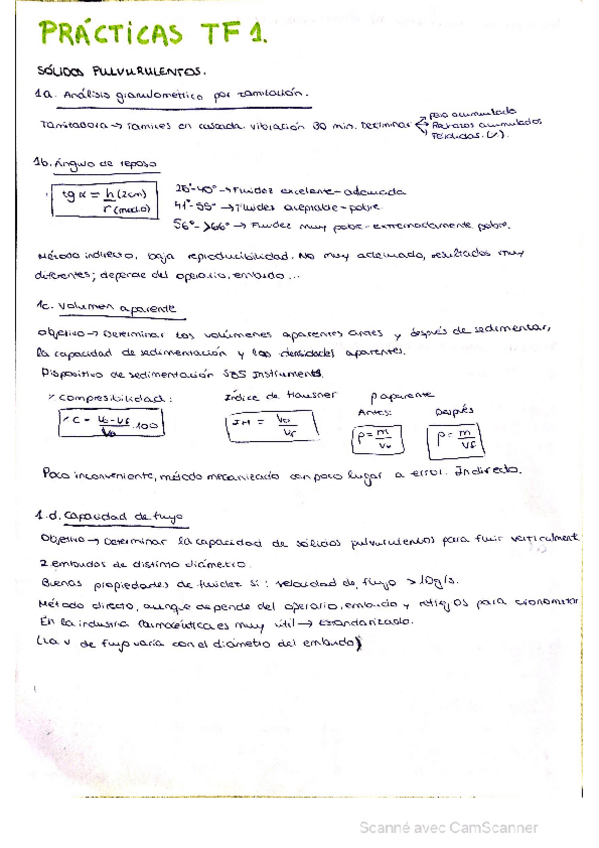 PRÁCTICAS TF1.
SÓLIDOS PULVURULENTOS.
1a. Análisis granulométrico por tamización.
Tamizadora → Tamices en cascada. vibración 30 min. Determinar
Peso acumulado
Retazos acumulados
Pérdidas (%).
1b. Ángulo de reposo
tg α = h (2cm) / r (medio)
25°-40° → Fluidez excelente-adecuada
41°-55° → Fluidez aceptable-pobre
56°->66° → Fluidez muy pobre-extremadamente pobre.
Método indirecto, baja reproducibilidad. No muy adecuado, resultados muy
diferentes; depende del operario, embudo...
1c. Volumen aparente
Objetivo → Determinar los volúmenes aparentes antes y después de sedimentar,
la capacidad de sedimentación y las densidades aparentes.
Dispositivo de sedimentación SBS Instruments.
% compresibilidad: Índice de Hausner ρaparente
Antes: Después
% C = V0-Vf / V0 . 100 IH = V0 / Vf ρ = m / V0 ρ = m / Vf
Poco inconveniente, método mecanizado con poco lugar a error. Indirecto.
1.d. Capacidad de flujo
Objetivo → Determinar la capacidad de sólidos pulvurulentos para fluir verticalment
2 embudos de distinto diámetro.
Buenas propiedades de fluidez si: velocidad de flujo > 10g/s.
Método directo, aunque depende del operario, embudo y reflejos para cronometar
En la industria farmacéutica es muy útil → Estandarizado.
(La v de flujo varía con el diámetro del embudo)
Scanné avec CamScanner